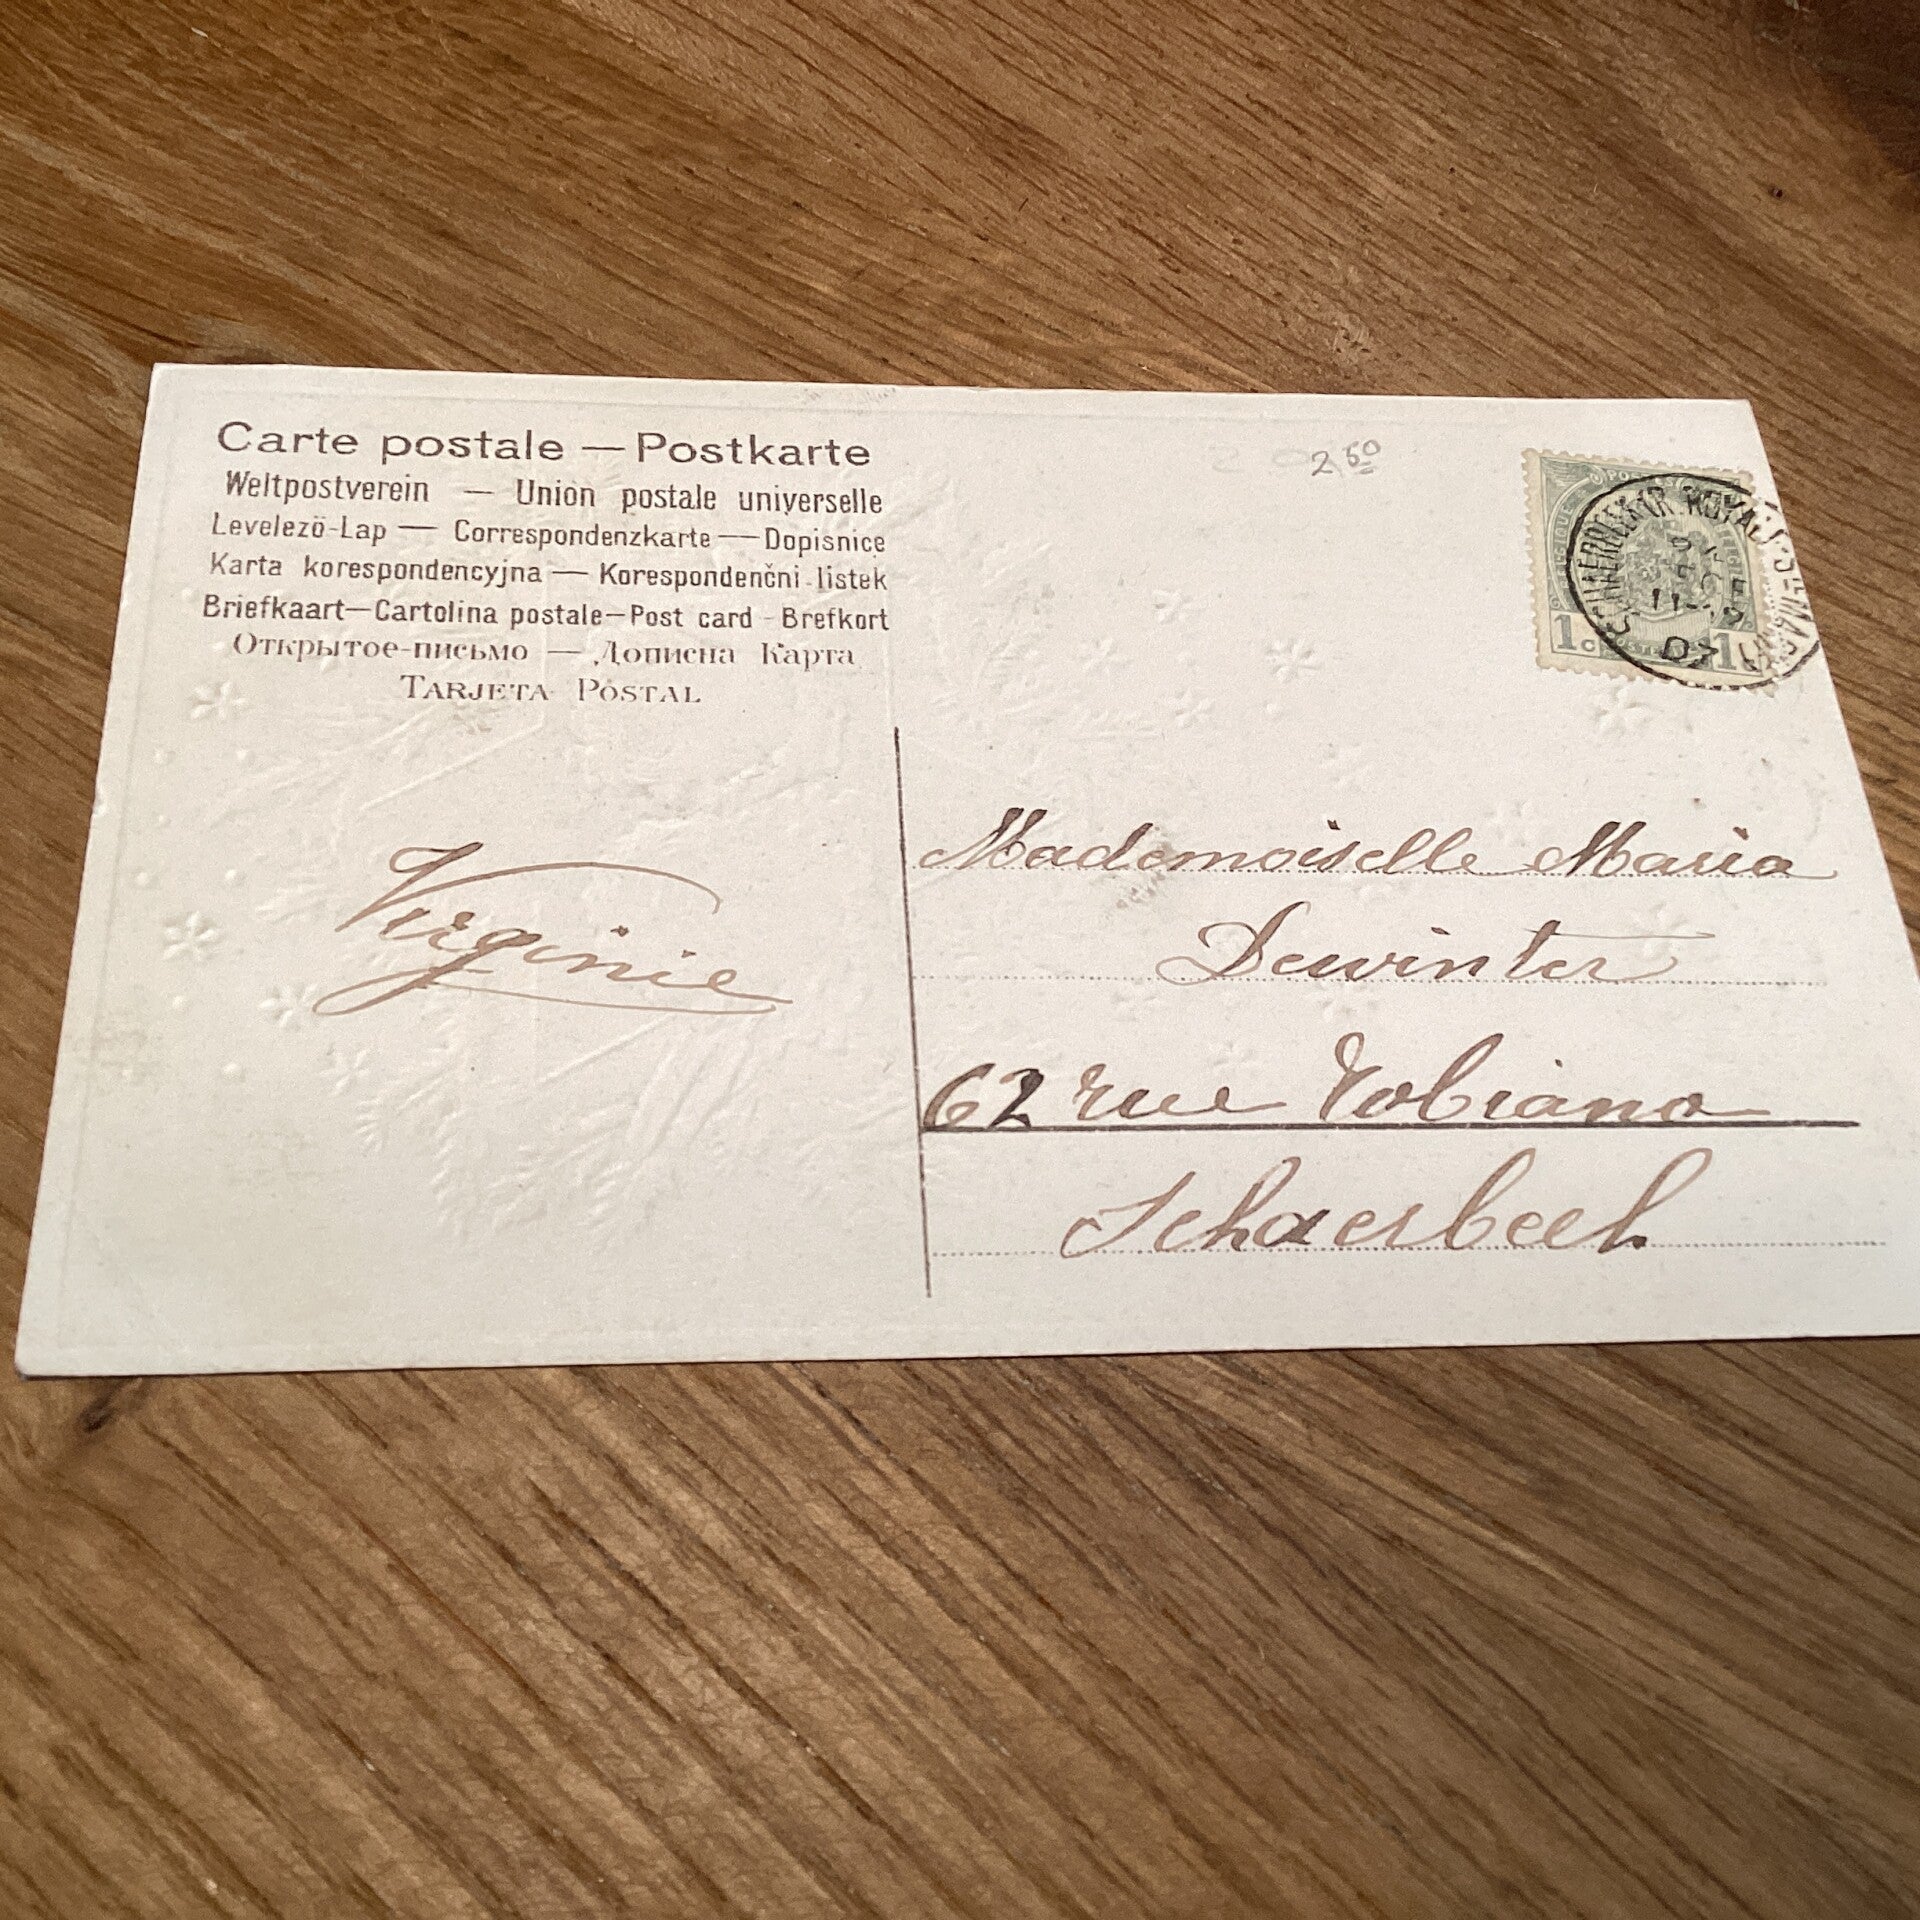 Carte postale — Postkarte
Weltpostverein — Union postale universelle
Levelezö-Lap — Correspondenzkarte — Dopisnice
Karta korespondencyjna — Korespondenčni listek
Briefkaart — Cartolina postale — Post card - Brefkort
Открытое-письмо — Дописна Карта
TARJETA POSTAL
2 50
1 c 1
07
Virginie
Mademoiselle Maria
Dewinter
62 rue Tobiano
Schaerbeek.